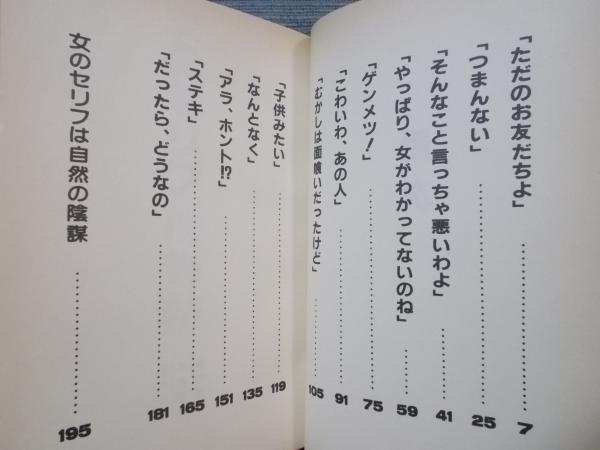 「ただのお友だちよ」……………………7
「つまんない」……………………25
「そんなこと言っちゃ悪いわよ」……………………41
「やっぱり、女がわかってないのね」……………………59
「ゲンメツ!」……………………75
「こわいわ、あの人」……………………91
「むかしは面喰いだったけど」……………………105
「子供みたい」……………………119
「なんとなく」……………………135
「アラ、ホント!?」……………………151
「ステキ」……………………165
「だったら、どうなの」……………………181
女のセリフは自然の陰謀……………………195